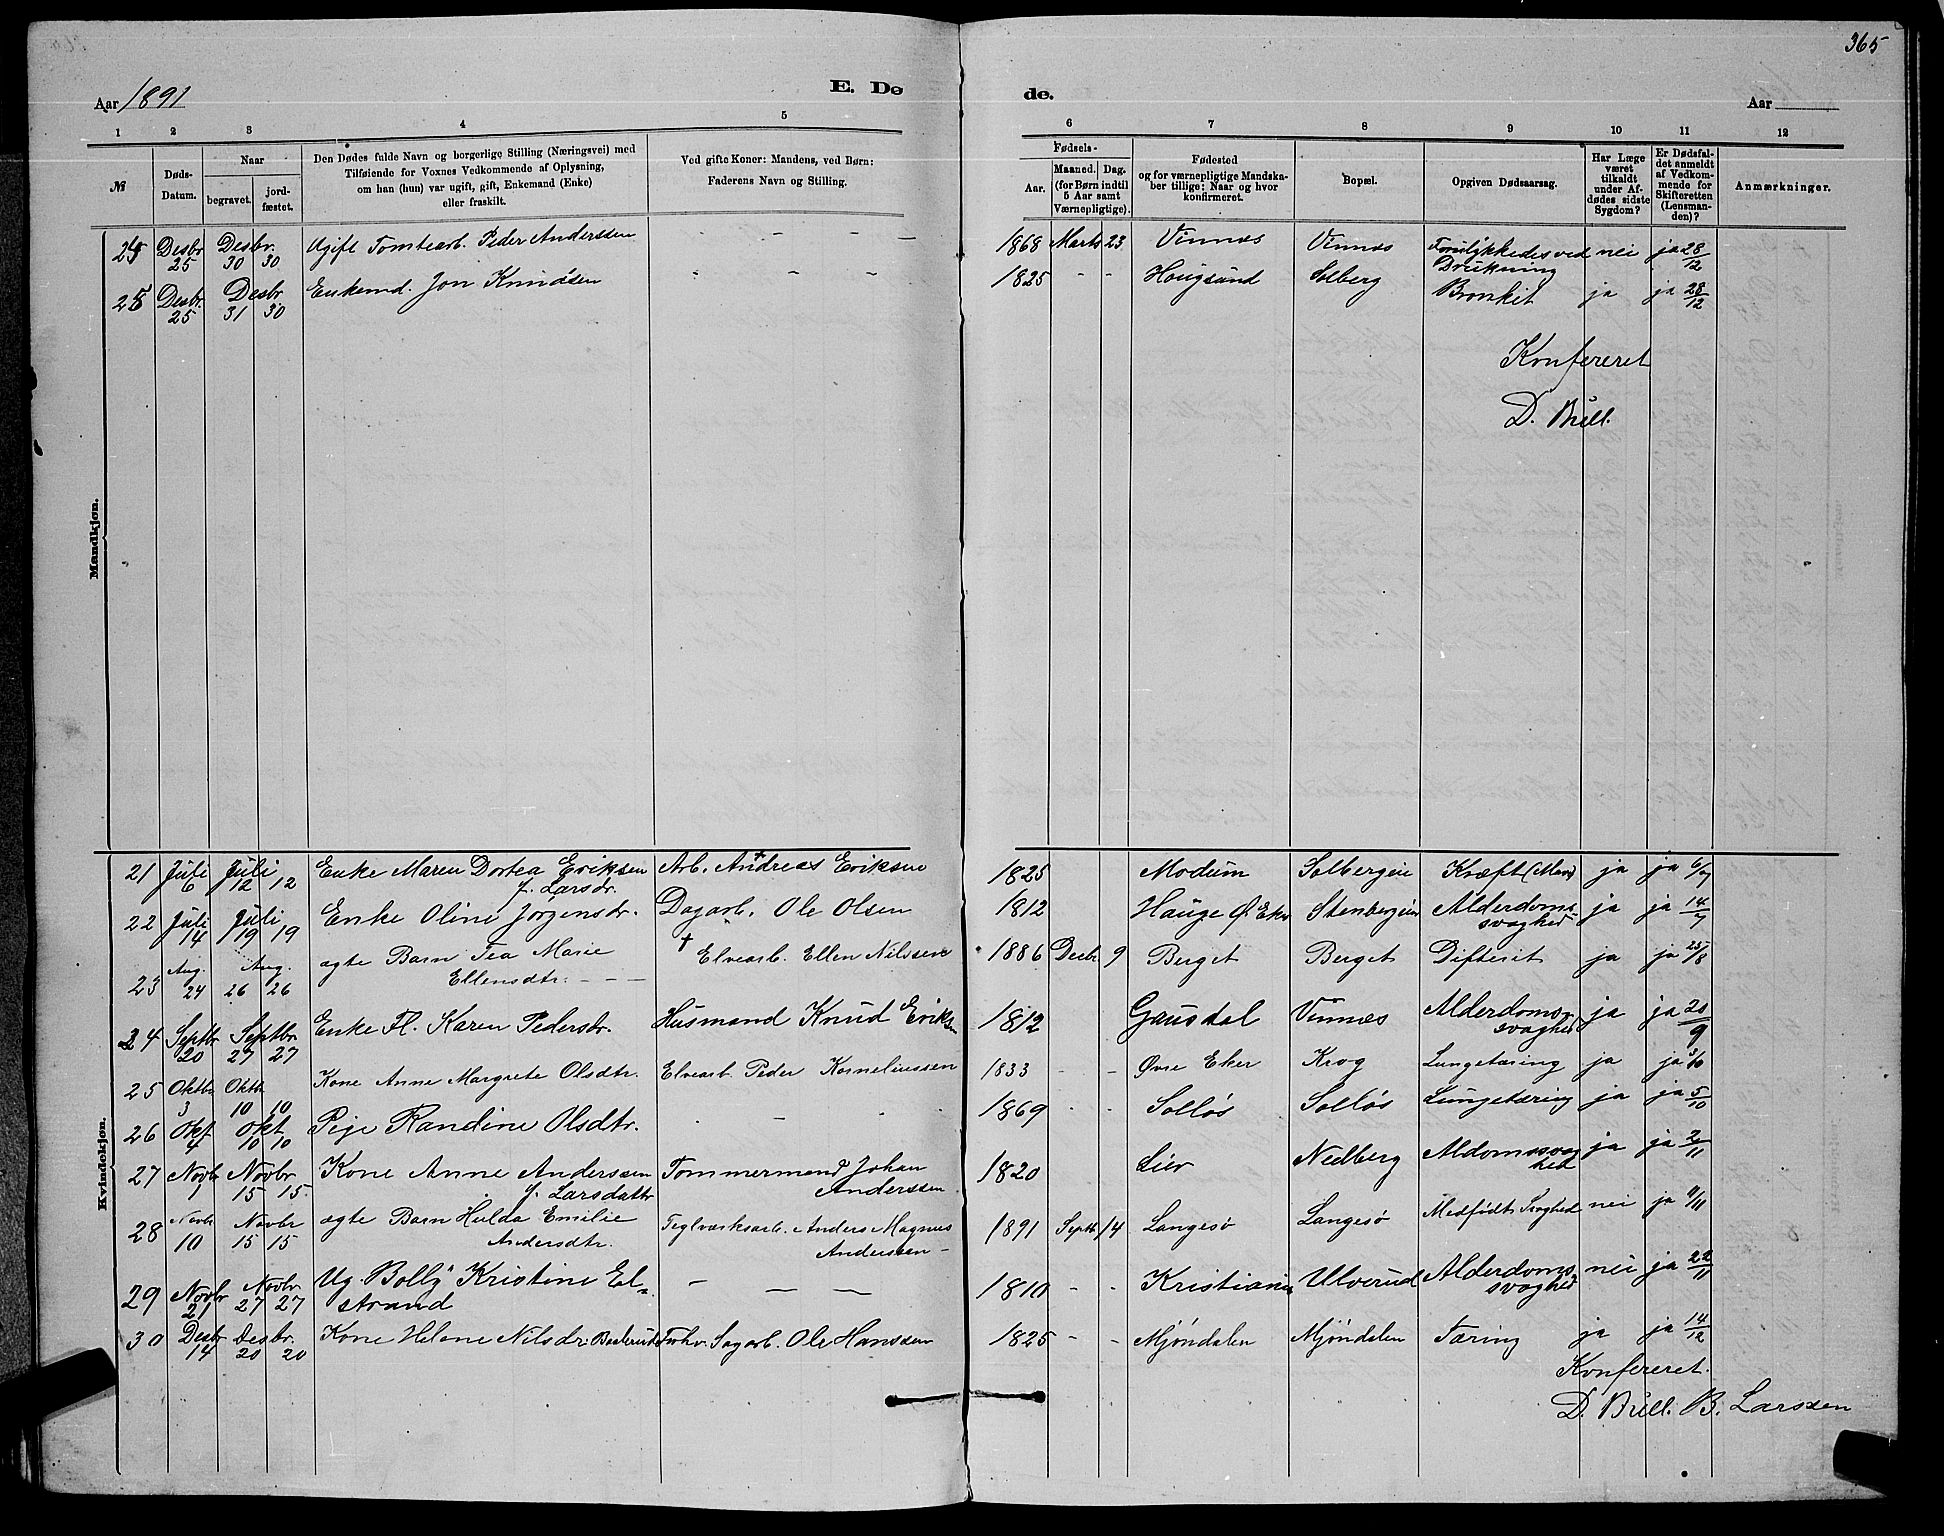 365
Aar 1891
E. Dø
de.
Aar
1 2 3 4 5 6 7 8 9 10 11 12
№
Døds-
Datum.
Naar
begravet.
jord-
fæstet.
Den Dødes fulde Navn og borgerlige Stilling (Næringsvei) med
Tilføiende for Voxnes Vedkommende af Oplysning,
om han (hun) var ugift, gift, Enkemand (Enke)
eller fraskilt.
Ved gifte Koner: Mandens, ved Børn:
Faderens Navn og Stilling.
Fødsels-
Aar.
Maaned. Dag.
(for Børn indtil
5 Aar samt
Værnepligtige).
Fødested
og for værnepligtige Mandska-
ber tillige: Naar og hvor
konfirmeret.
Bopæl.
Opgiven Dødsaarsag.
Har Læge
været
tilkaldt
under Af-
dødes sidste
Sygdom?
Er Dødsfal-
det anmeldt
af Vedkom-
mende for
Skifteretten
(Lensman-
den)?
Anmærkninger.
Mandkjøn.
24 Desbr 25 Desbr. 30 30 Ugift Tomtearb. Peder Anderssen - - - - 1868 Marts 23 Vinnæs Vinnæs Forulykkedes ved Drukning nei ja 28/12
25 Desbr. 25 Desbr 31 30 Enkemd. Jon Knudsen - - - 1825 - - Hougsund Solberg Bronkit ja ja 28/12
Konfereret
D. Bull.
Kvindekjøn.
21 Juli 6 Juli 12 12 Enke Maren Dortea Eriksen f. Larsdr. Arb. Andreas + Eriksen 1825 Modum Solbergeie Kræft (Mave) ja ja 6/7
22 Juli 14 Juli 19 19 Enke Oline Jørgensdr. Dagarb. Ole Olsen 1812 Hauge Ø. Eker Stenbergeie Alderdoms svaghed ja ja 14/7
23 Aug. 24 Aug. 26 26 ægte Barn Tea Marie Ellensdtr. - - - + Elvearb. Ellen Nilssen 1886 Decbr. 9 Berget Berget Difterit ja ja 25/8
24 Septbr 20 Septbr 27 27 Enke Fl. Karen Pedersdr. Husmand Knud Eriksen 1812 Gausdal Vinnæs Alderdoms svaghed ja ja 20/9
25 Oktbr 3 Oktbr 10 10 Kone Anne Margrete Olsdtr. Elvearb. Peder Korneliussen 1833 - - Øvre Eker Krog Lungetæring ja ja 3/10
26 Okt 4 Okt 10 10 Pige Randine Olsdtr. - - 1869 - - Solløs Solløs Lungetæring ja ja 5/10
27 Novbr 1 Novbr 15 15. Kone Anne Anderssen f. Larsdattr Tømmermand Johan Anderssen 1820 Lier Nedberg Aldomssvaghed ja ja 2/11
28 Novbr 10 Novbr 15 15 ægte Barn Hulda Emilie Andersdtr. Teglværksarb. Anders Magnus Anderssen - 1891 Septb 14 Langesø Langesø Medfødt Svaghed nei ja 11/11
29 Novbr 21 Novbr. 27 27 Ug. Bolly Kristine Elstrand - - - 1810 - - Kristiania Ulverud Alderdoms svaghed nei ja 22/11
30 Desbr 14 Desbr. 20 20 Kone Helene Nilsdr. Forhv. Sagarb. Ole Hanssen 1825 - - Mjøndalen Mjøndalen Tæring ja ja 14/12
Konfereret.
D. Bull. B. Larssen